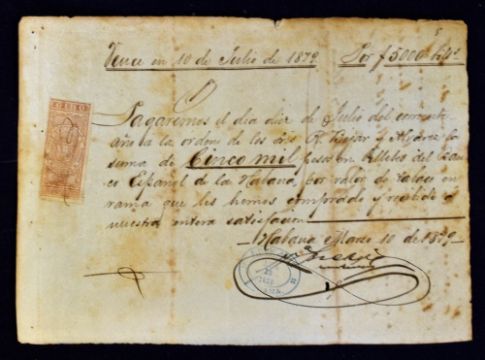 Vence en 10 de Julio de 1879. Por $5000 
GIRO
Pagaremos el dia diez de Julio del corriente
año a la orden de los Sres. R. y Alvarez la
suma de Cinco mil pesos en billetes del Ban-
co Español de la Habana, por valor de tabaco en
rama que les hemos comprado y recibido á
nuestra entera satisfaccion
Habana Marzo 10 de 1879